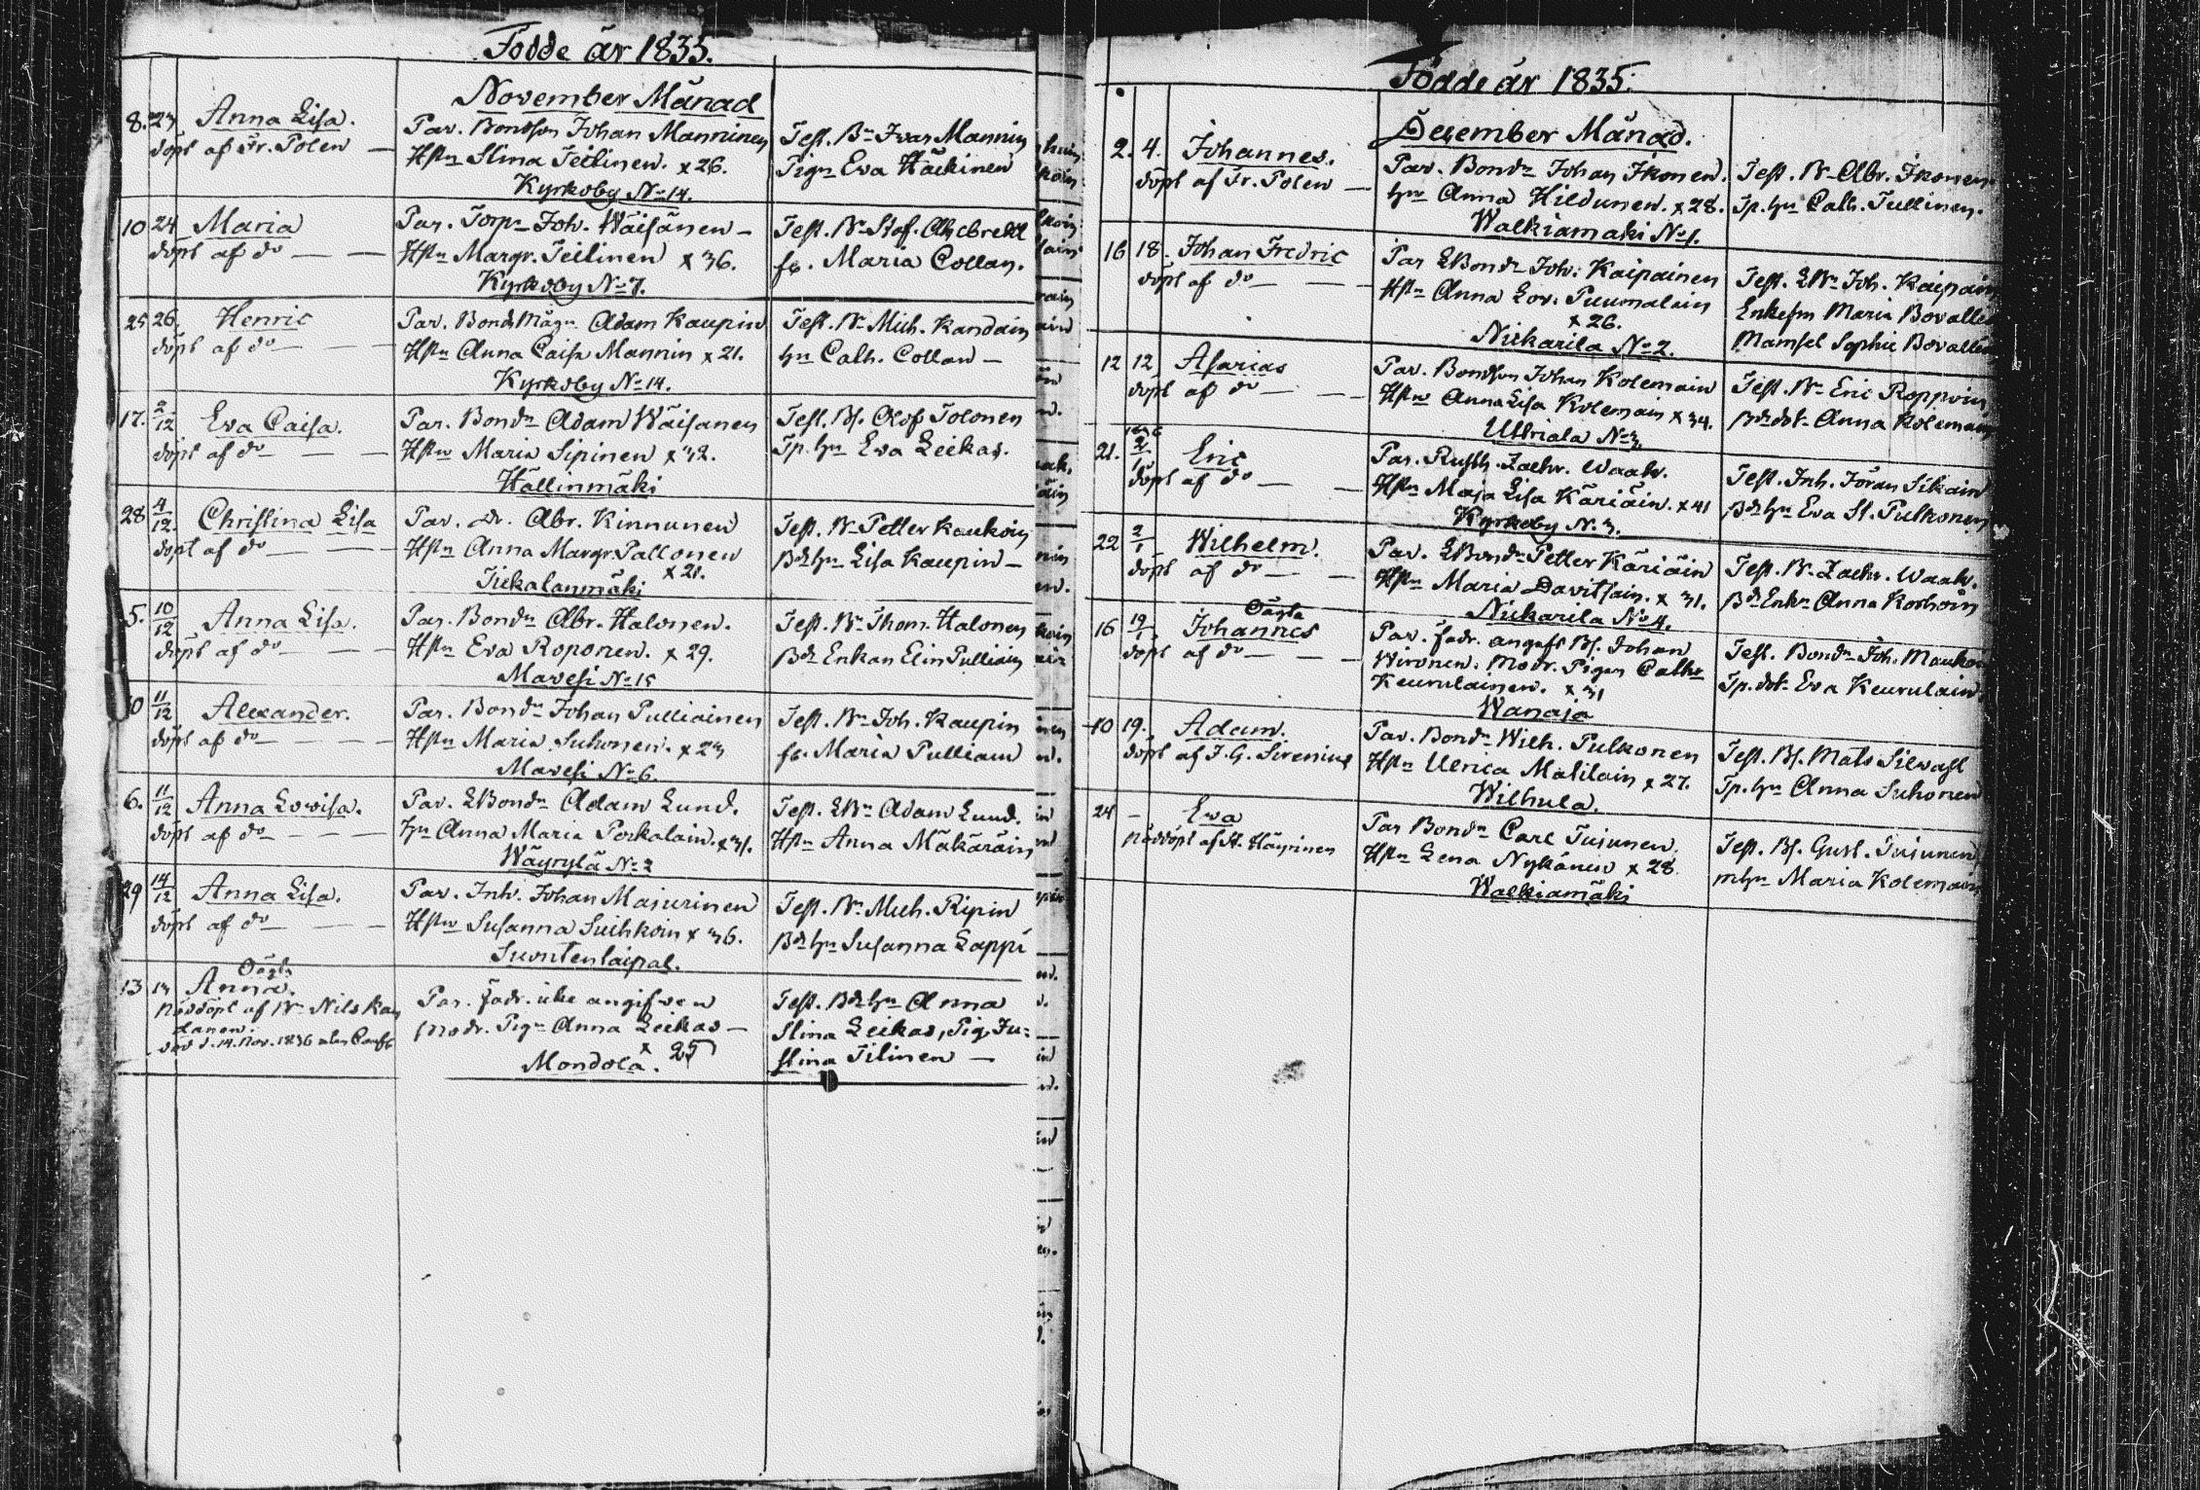 Födde år 1835.
November Månad
8. 23 Anna Lisa.
döpt af Fr. Polen —
Par. Bondson Johan Manninen
Hstn Stina Teilinen. x 26.
Kyrkoby No 14.
Test. Bn Ivar Mannin
Pign Eva Häckinen
10 24 Maria
döpt af do — —
Par. Torpn Joh. Wäisänen —
Hstn Margr. Teilinen x 36.
Kyrkoby No 7.
Test. Bn Stof. Ahlebreckt
fr. Maria Collan.
25 26. Henric
döpt af do — —
Par. Bonds Mågn Adam Kaupin
Hstn Anna Caisa Mannin x 21.
Kyrkoby No 14.
Test. Bn Mich. Kandain
hn Cath. Collan —
17. 2/12 Eva Caisa.
döpt af do — —
Par. Bondn Adam Wäisanen
Hstn Maria Sipinen x 32.
Hällinmäki
Test. Bs. Olof Tolonen
Tp. hn Eva Leikas.
28 4/12. Christina Lisa
döpt af do — —
Par. dr. Abr. Kinnunen
Hstn Anna Margr. Pallonen
x 21.
Tiekalanmäki
Test. Bn Petter Kaukoin
Bdhn Lisa Kaupin —
5. 10/12 Anna Lisa.
döpt af do — —
Par. Bondn Abr. Halonen.
Hstn Eva Roponen. x 29.
Mavesi No 15
Test. Bn Thom. Halonen
Bd Enkan Elin Pulliain
11/12 Alexander.
döpt af do — —
Par. Bondn Johan Pulliainen
Hstn Maria Suhonen. x 23
Mavesi No 6.
Test. Bn Joh. Kaupin
fr. Maria Pulliain
6. 11/12 Anna Lovisa.
döpt af do — —
Par. LBondn Adam Lund.
hn Anna Maria Porkalain. x 31.
Wäyrylä No 2
Test. LBn Adam Lund.
Hstn Anna Mäkäräin
29 14/12 Anna Lisa.
döpt af do — —
Par. Inh. Johan Majurinen
Hstn Susanna Suihkoin x 36.
Suontenlaipal.
Test. Bn Mich. Ripin
Bdhn Susanna Lappi
Oägta
13 13 Anna.
Nöddöpt af Bn Nils Kan
danen.
Död d. 14. Nov. 1836
Par. Fadr. icke angifven
Modr. Pign Anna Leikas —
x 25
Mondola.
Test. Bdhn Anna
Stina Leikas, Pig. Ju=
stina Tilinen —
Födde år 1835.
December Månad.
2. 4. Johannes.
döpt af Fr. Polen —
Par. Bondn Johan Ikonen.
hn Anna Hildunen. x 28.
Walkiamaki No 1.
Test. Bn Abr. Ikonen
Tp. hn Cath. Tullinen.
16 18. Johan Fredric
döpt af do — —
Par LBondn Joh. Kaipainen
Hstn Anna Lov. Puumalain
x 26.
Niekarila No 2.
Test. LBn Joh. Kaipain
Enkefrn Maria Bovallie
Mamsel Sophie Bovallie
12 12 Asarias
döpt af do — —
Par. Bondson Johan Kolemain
Hstn Anna Lisa Kolemain x 34.
Uttriala No 3.
Test. Bn Eric Roppoin
Bd dot. Anna Kolemain
1836
21. 2/1 Eric
döpt af do — —
Par. Rusth. Zachr. Waahr.
Hstn Maja Lisa Käriäin. x 41
Kyrkoby No 3.
Test. Inh. Jöran Sikain
Bdhn Eva St. Pulkonen
22 2/1 Wilhelm.
döpt af do — —
Par. LBondn Petter Käriäin
Hstn Maria Davitsain. x 31.
Niekarila No 4.
Test. Bn Zachr. Waahr.
Bd Enkn Anna Korhoin
Oägta
16 19/1 Johannes
döpt af do — —
Par. Fadr. angafs Bs. Johan
Wironen. Modr. Pigan Cathr
Keurulainen. x 31
Wanaja
Test. Bondn Joh. Maukon
Tp. dot. Eva Keurulain
10 19. Adam.
döpt af J. G. Sirenius
Par. Bondn Wilh. Pulkonen
Hstn Ulrica Matilain x 27.
Wilhula.
Test. Bs. Mats Silvast
Tp. hn Anna Suhonen
24 — Eva
Nöddöpt af A. Häyrinen
Par Bondn Carl Tujunen.
Hstn Lena Nykänen x 28.
Walkiamäki
Test. Bs. Gust. Tujunen
mhn Maria Kolemain